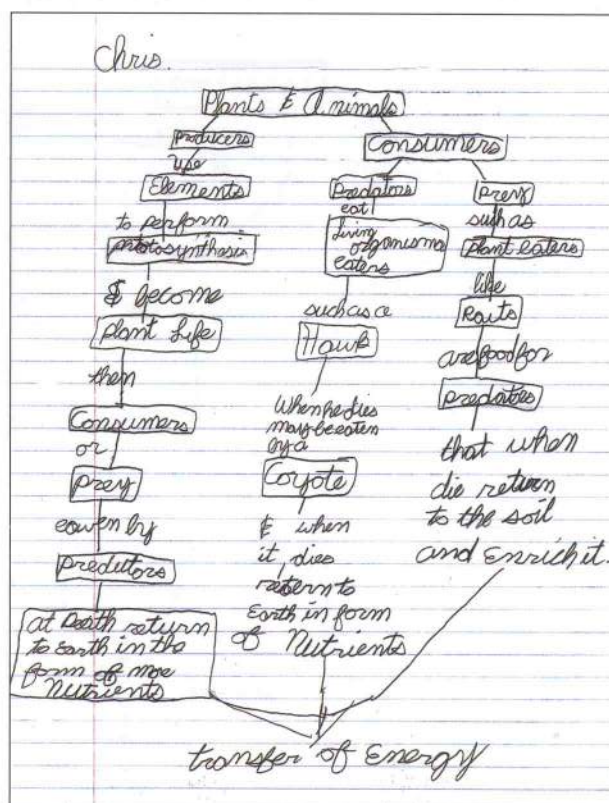 Chris.
Plants & Animals
Producers
use
Elements
to perform
photosynthesis
& become
Plant Life
then
Consumers
or
prey
eaven by
Predutors
at Death return
to Earth in the
form of more
Nutrients
Consumers
Predators
eat
Living
organisms
eaters
such as a
Hawk
When he dies
may be eaten
by a
Coyote
& when
it dies
return to
Earth in form
of Nutrients
prey
such as
plant eaters
like
are food for
predators
that when
die return
to the soil
and Enrich it.
transfer of Energy